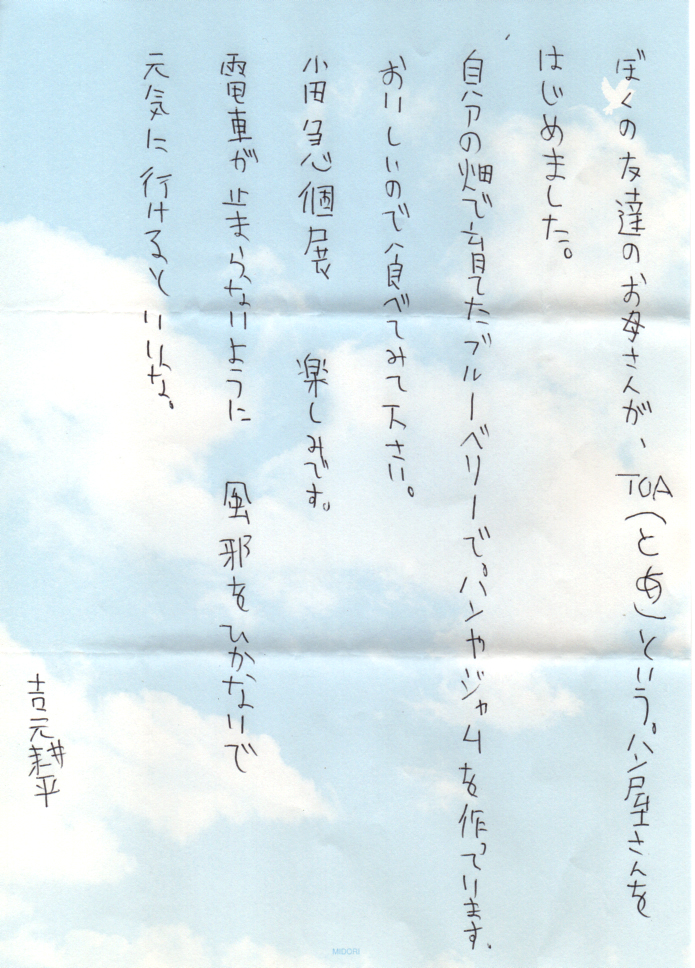 ぼくの友達のお母さんが、TOA(とあ)という。パン屋さんを
はじめました。
自分の畑で育てたブルーベリーで。パンやジャムを作っています。
おいしいので食べてみて下さい。
小田急個展　楽しみです。
電車が止まらないように　風邪をひかないで
元気に行けるといいな。
吉元耕平
MIDORI